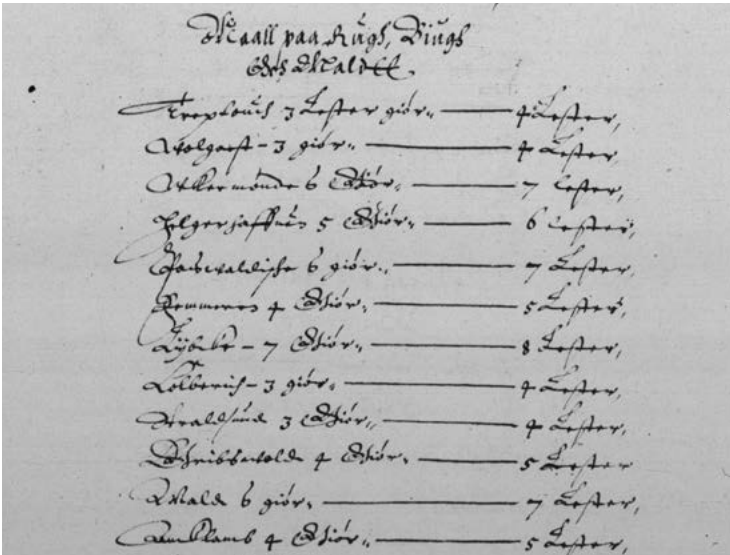 Maall paa Rugh, Biugh
och Maltt
Treptouch 3 Lester giör 4 Lester,
Wolgast - 3 giör 4 Lester
Vkermönde 6 Giör 7 Lester,
Helgerhaffuen 5 Giör 6 Lester,
Paswaldische 6 giör 7 Lester,
Pemmeren 4 Giör, 5 Lester,
Lybeke - 7 Giör 8 Lester,
Colberich - 3 giör 4 Lester,
Stralsund 3 Giör 4 Lester,
Gribswold 4 Giör, 5 Lester
Wald 6 giör, 7 Lester,
Ancklamb 4 Giör 5 Lester,